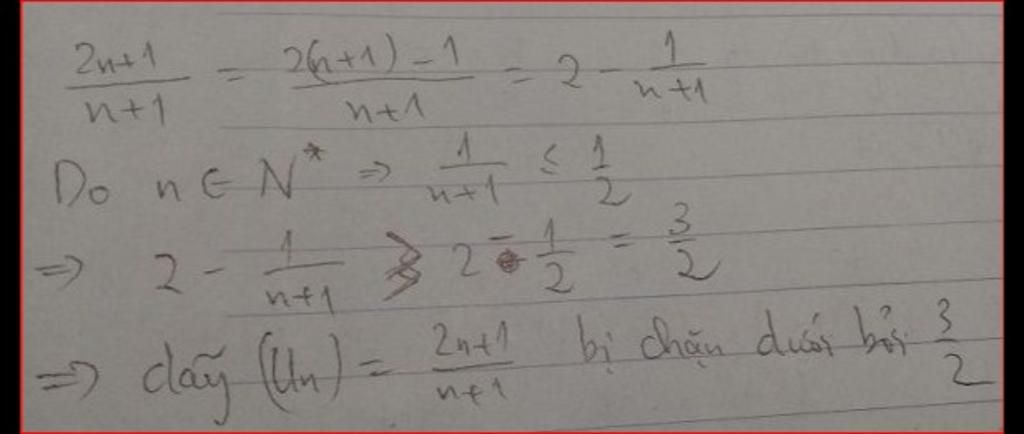 2n+1/n+1 = 2(n+1)-1/n+1 = 2 - 1/n+1
Do n ∈ N* => 1/n+1 ≤ 1/2
=> 2 - 1/n+1 ≥ 2 - 1/2 = 3/2
=> dãy (Un) = 2n+1/n+1 bị chặn dưới bởi 3/2